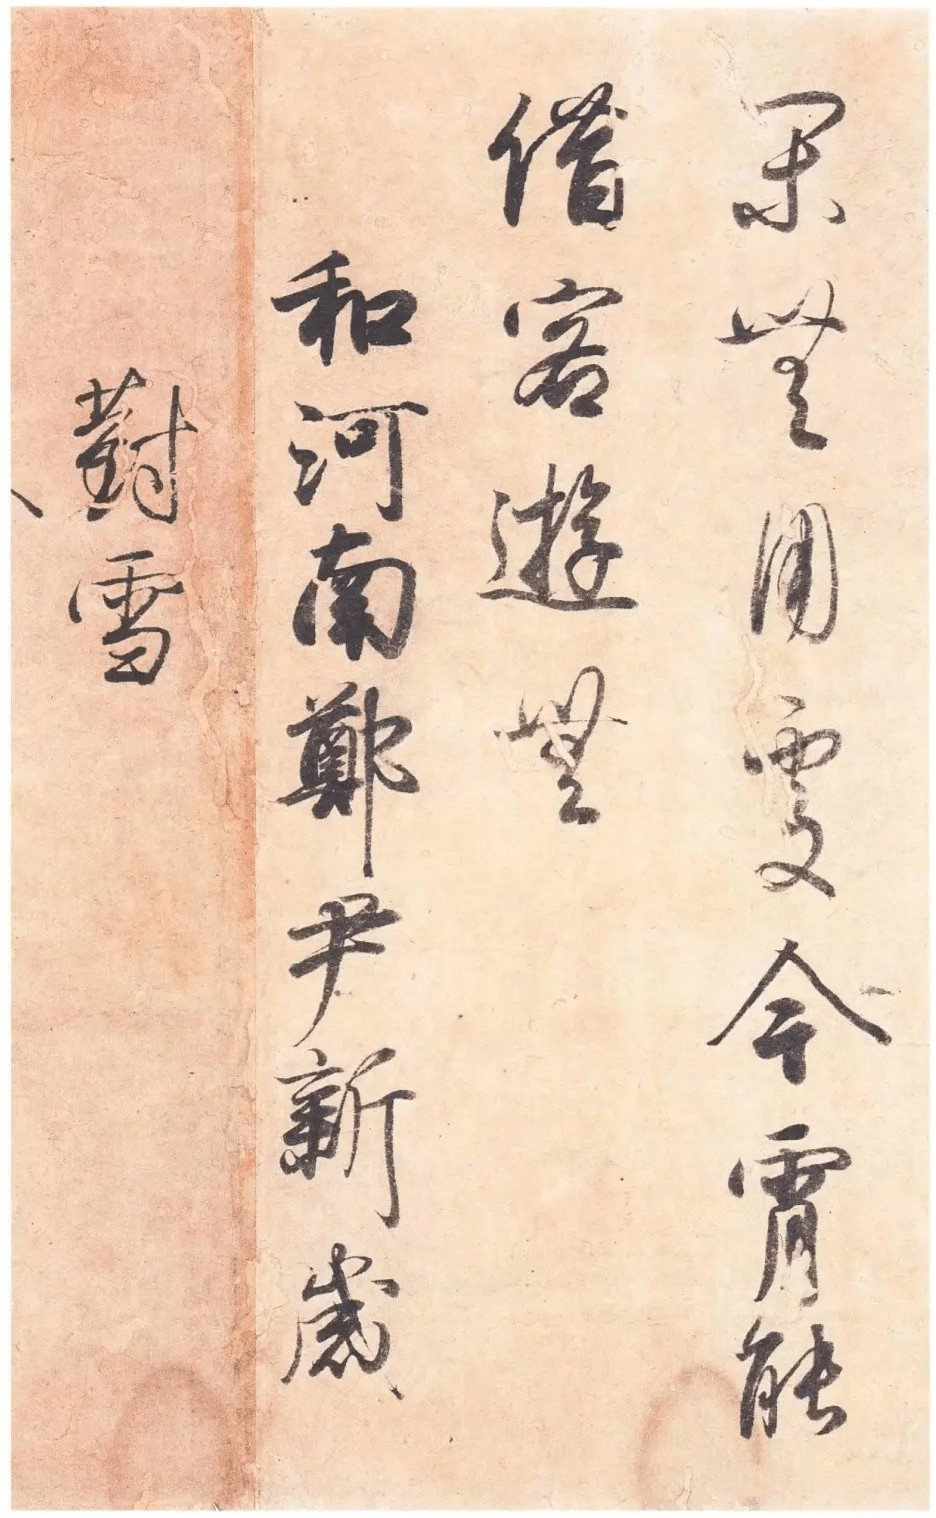 閑無用處今宵能
借客遊無
和河南鄭尹新歲
對雪